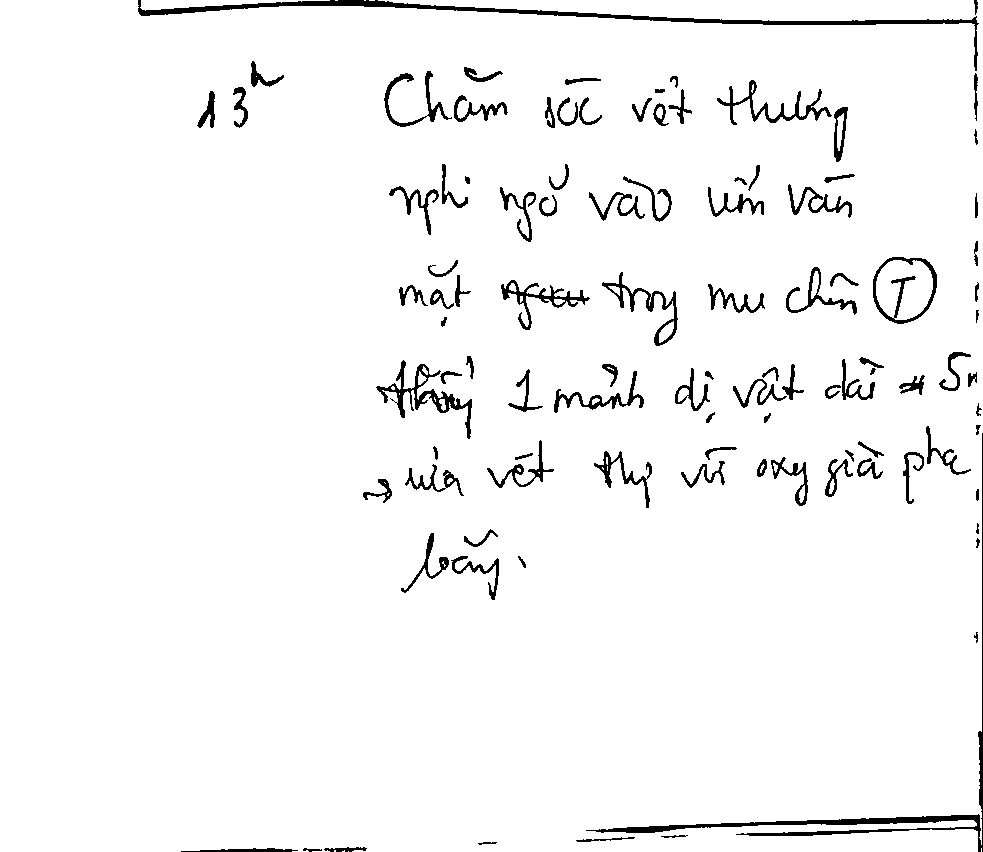 13h Chăm sóc vết thương
nghi ngờ vào uốn ván
mặt trong mu chân (T)
thấy 1 mảnh dị vật dài 5
→ rửa vết thg với oxy già pha
băng.